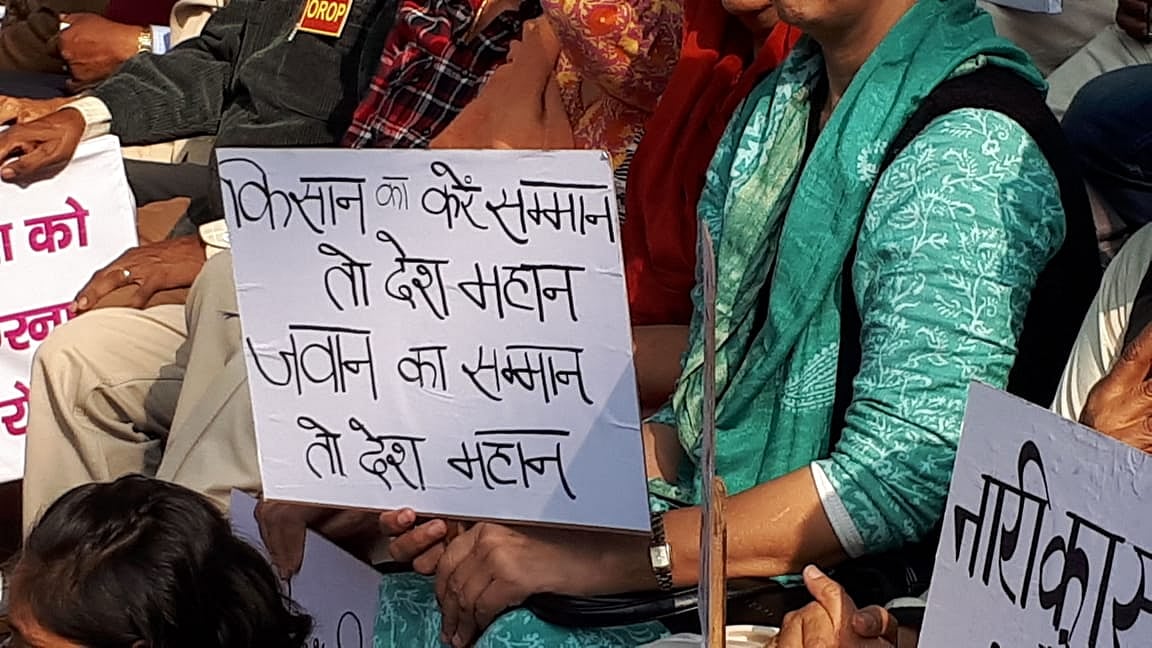 OROP
किसान का करें सम्मान
तो देश महान
जवान का सम्मान
तो देश महान
को
नारी का